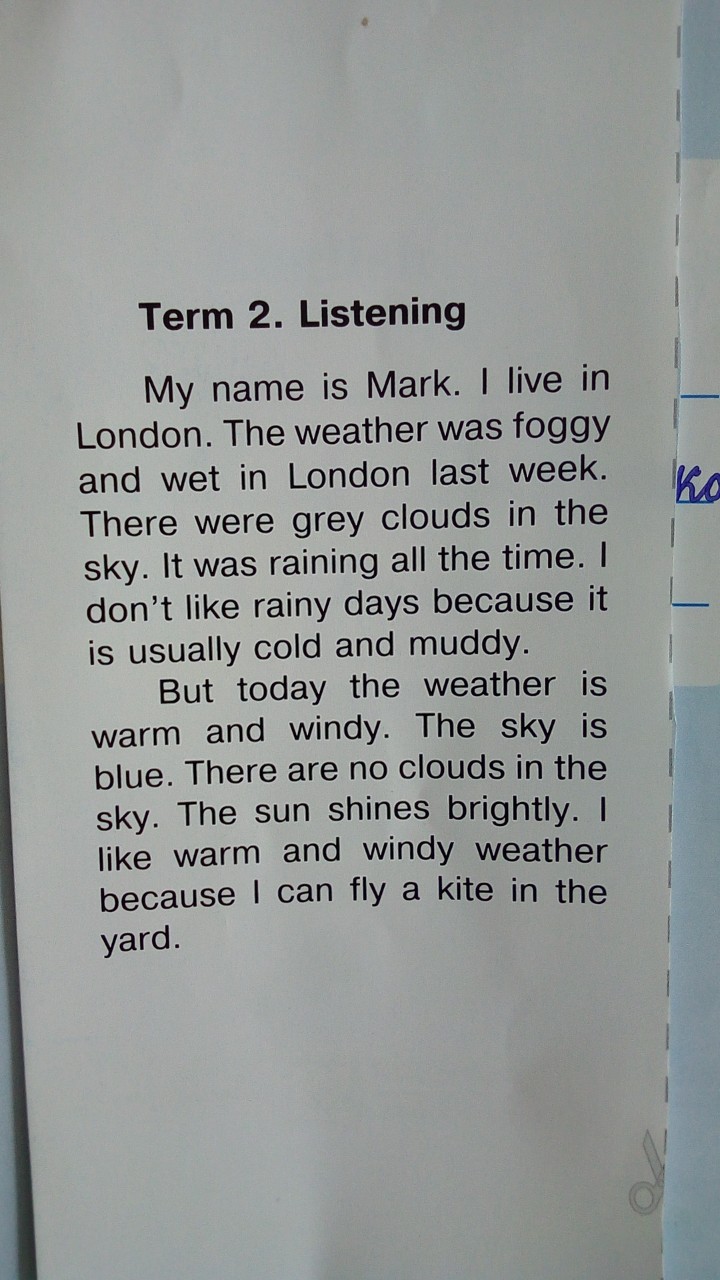 Term 2. Listening
My name is Mark. I live in
London. The weather was foggy
and wet in London last week.
There were grey clouds in the
sky. It was raining all the time. I
don't like rainy days because it
is usually cold and muddy.
But today the weather is
warm and windy. The sky is
blue. There are no clouds in the
sky. The sun shines brightly. I
like warm and windy weather
because I can fly a kite in the
yard.